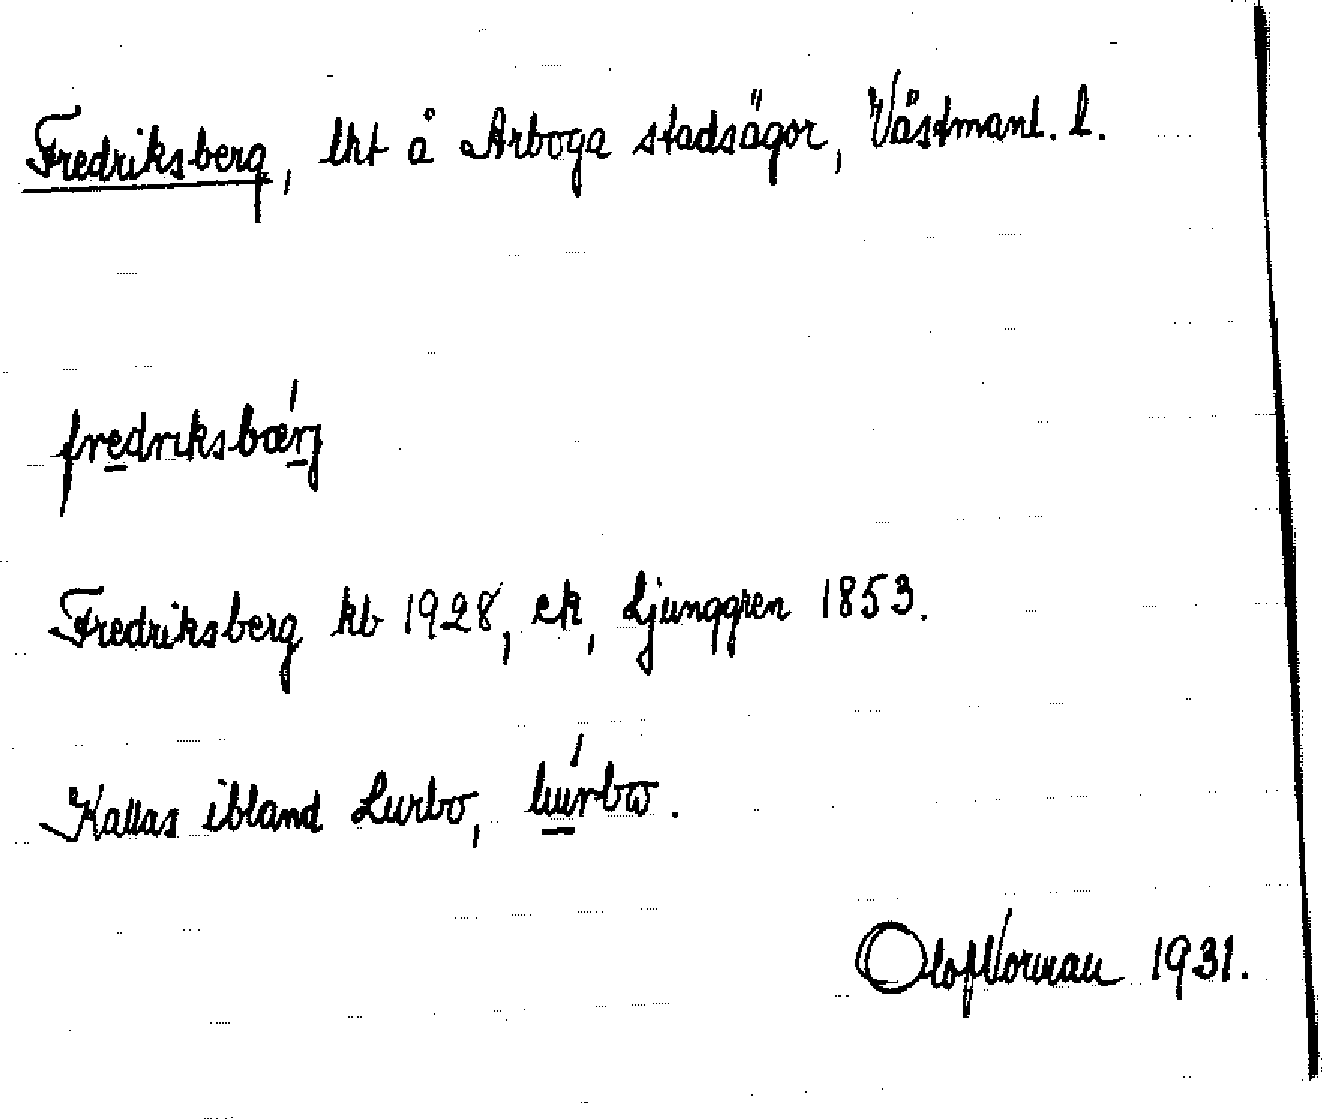 Fredriksberg, lht å Arboga stadsägor, Västmanl. l.
fredriksbærj
Fredriksberg kb 1928, ek, Ljunggren 1853.
Kallas ibland Lurbo,
Olof Norman 1931.